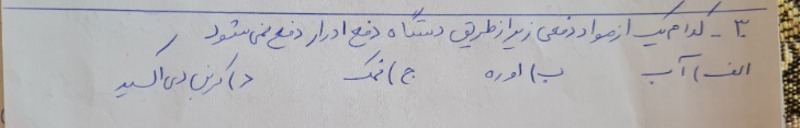 ۳ - کدام یک از مواد دفعی زیر از طریق دستگاه دفع ادرار دفع نمی شود
الف) آب ب) اوره ج) نمک د) کربن دی اکسید